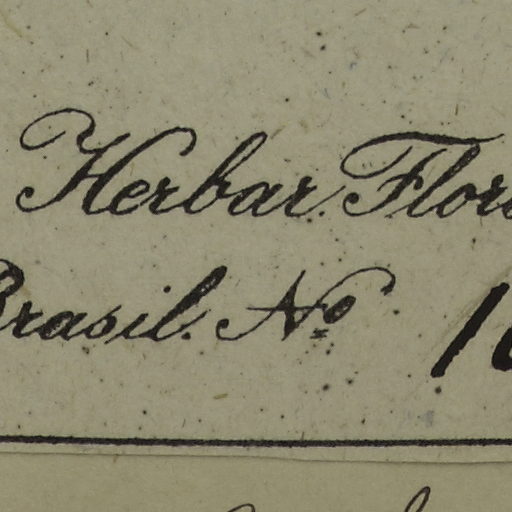 Herbar. Flor
Brasil. Nº 1